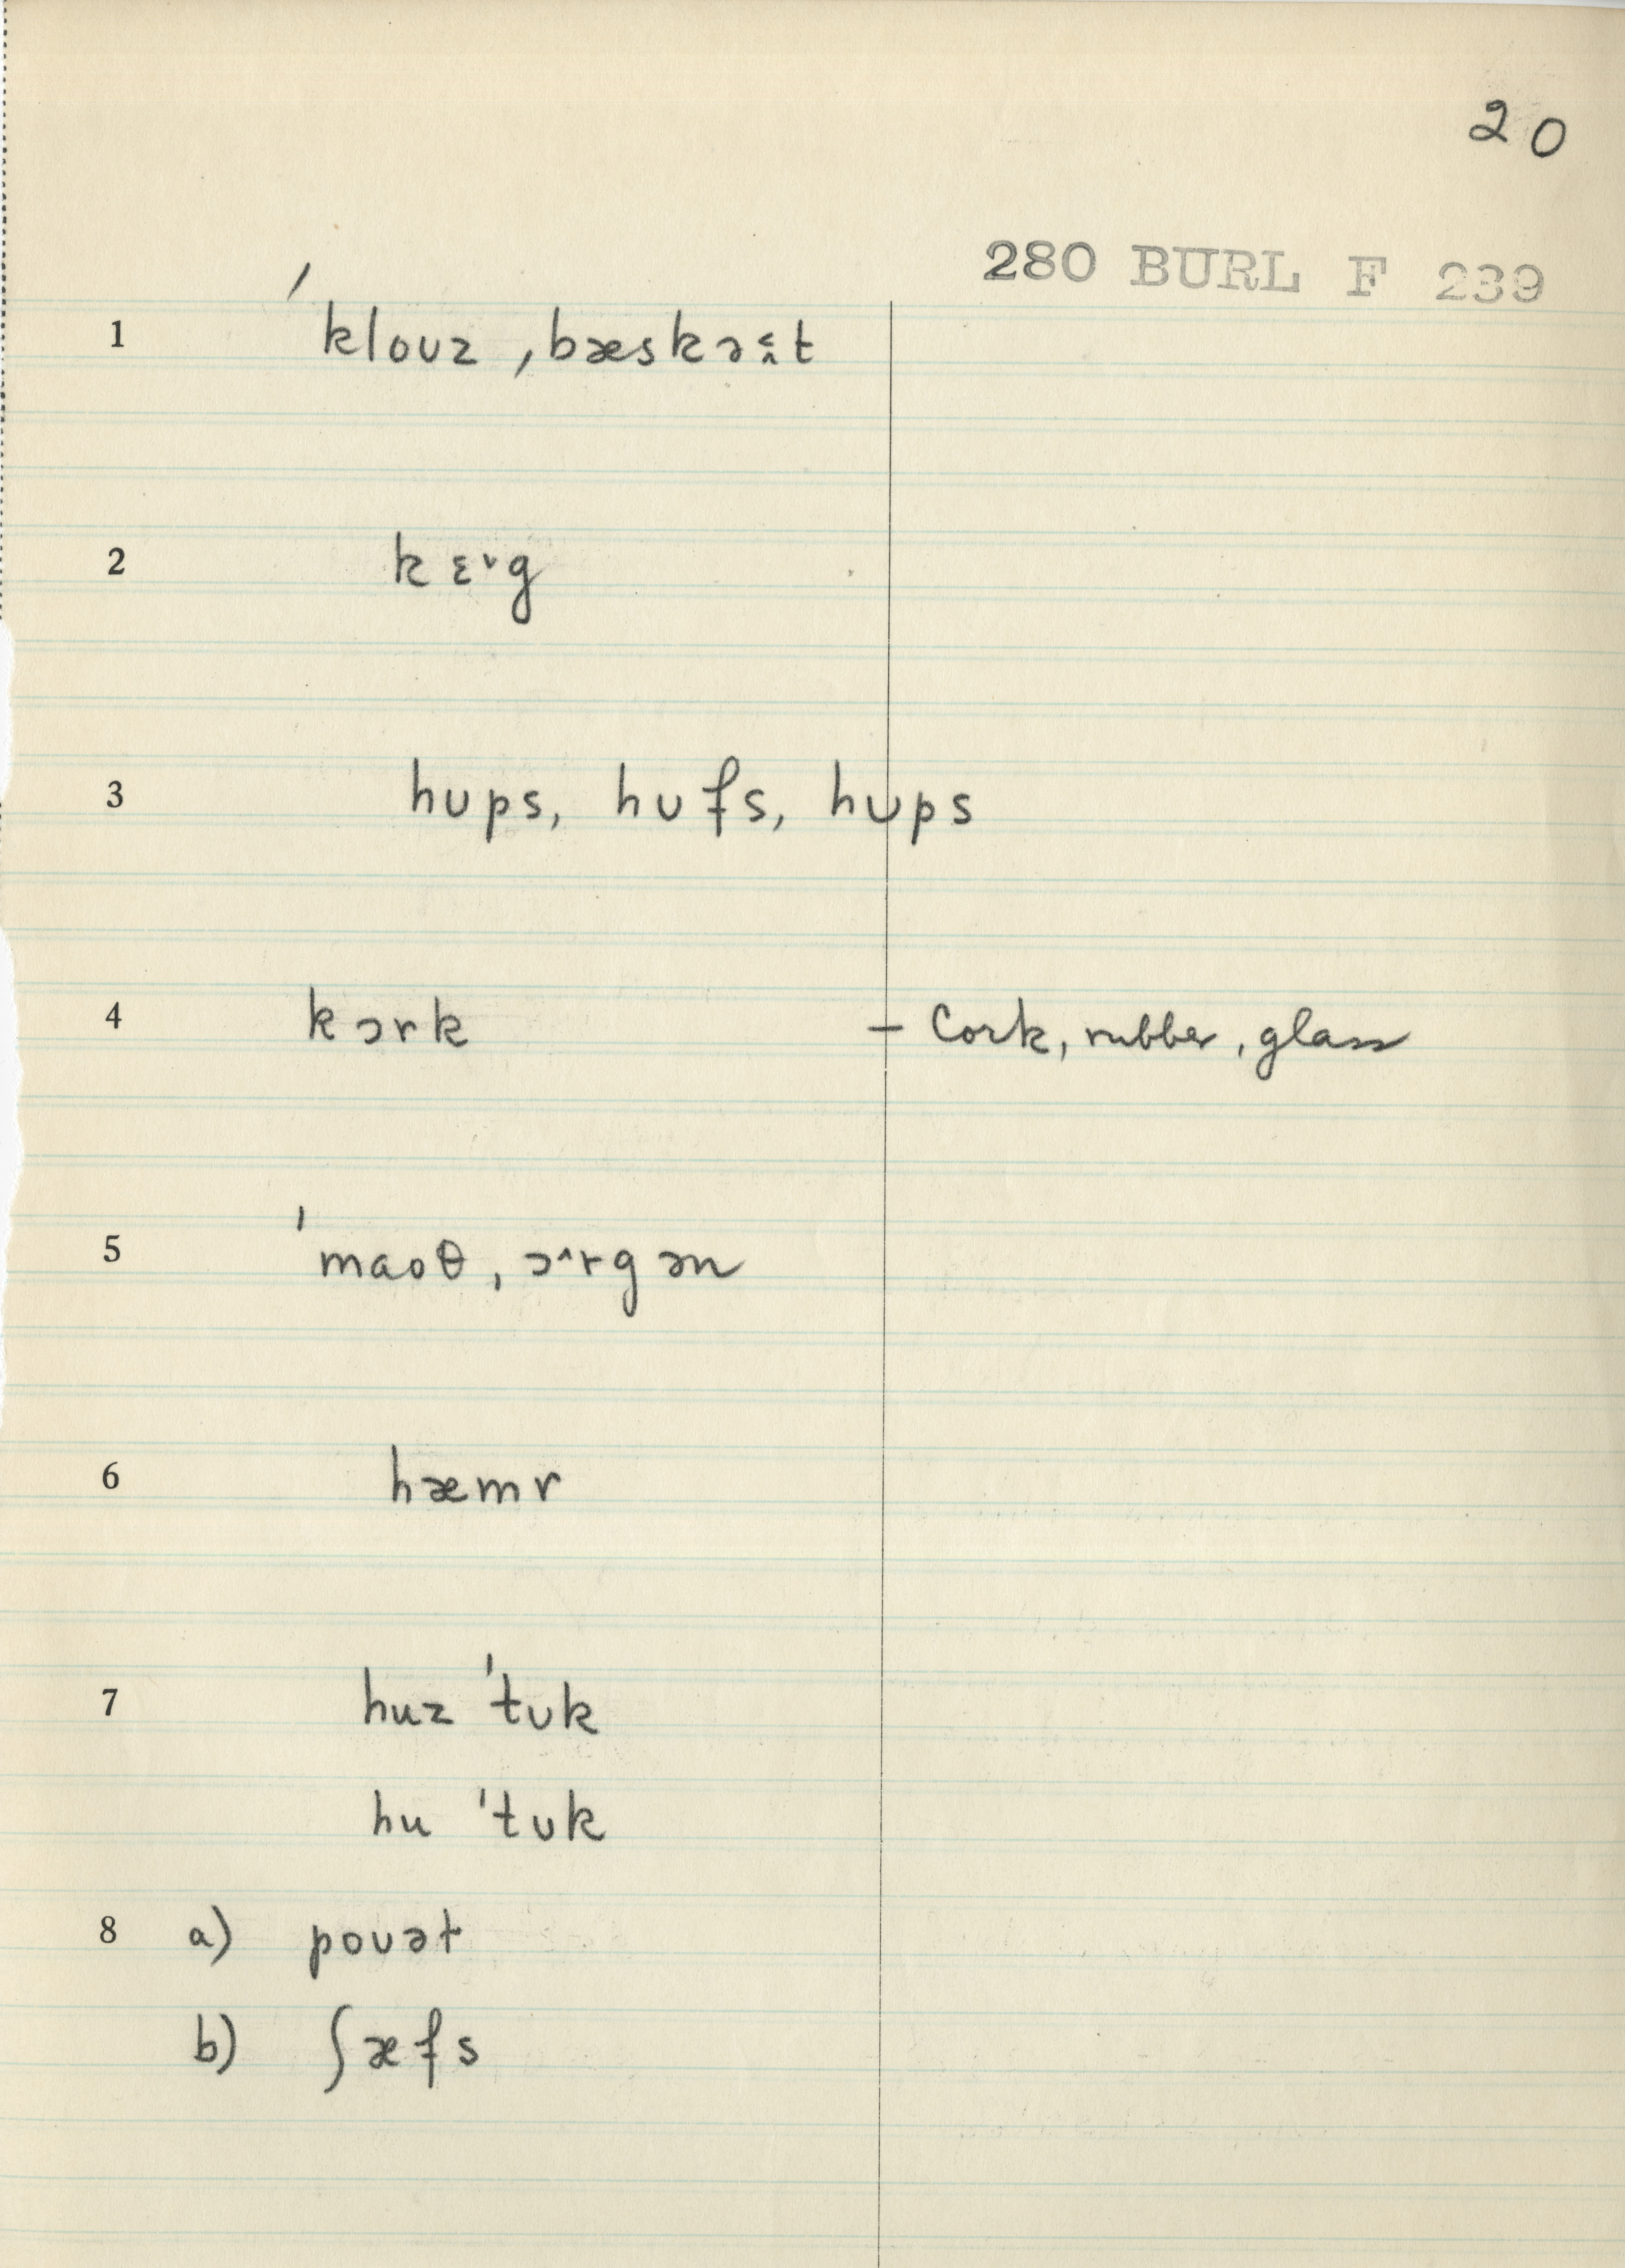 20
280 BURL F 239
1 ˈklouz ,bæskəɛ̭t
2 kɛ˅g
3 hups, hʊfs, hʊps
4 kɔrk – Cork, rubber, glass
5 ˈmaoθ, ɔ^rgən
6 hæmr
7 huz ˈtʊk
hu ˈtʊk
8 a) pouət
b) ʃæfs